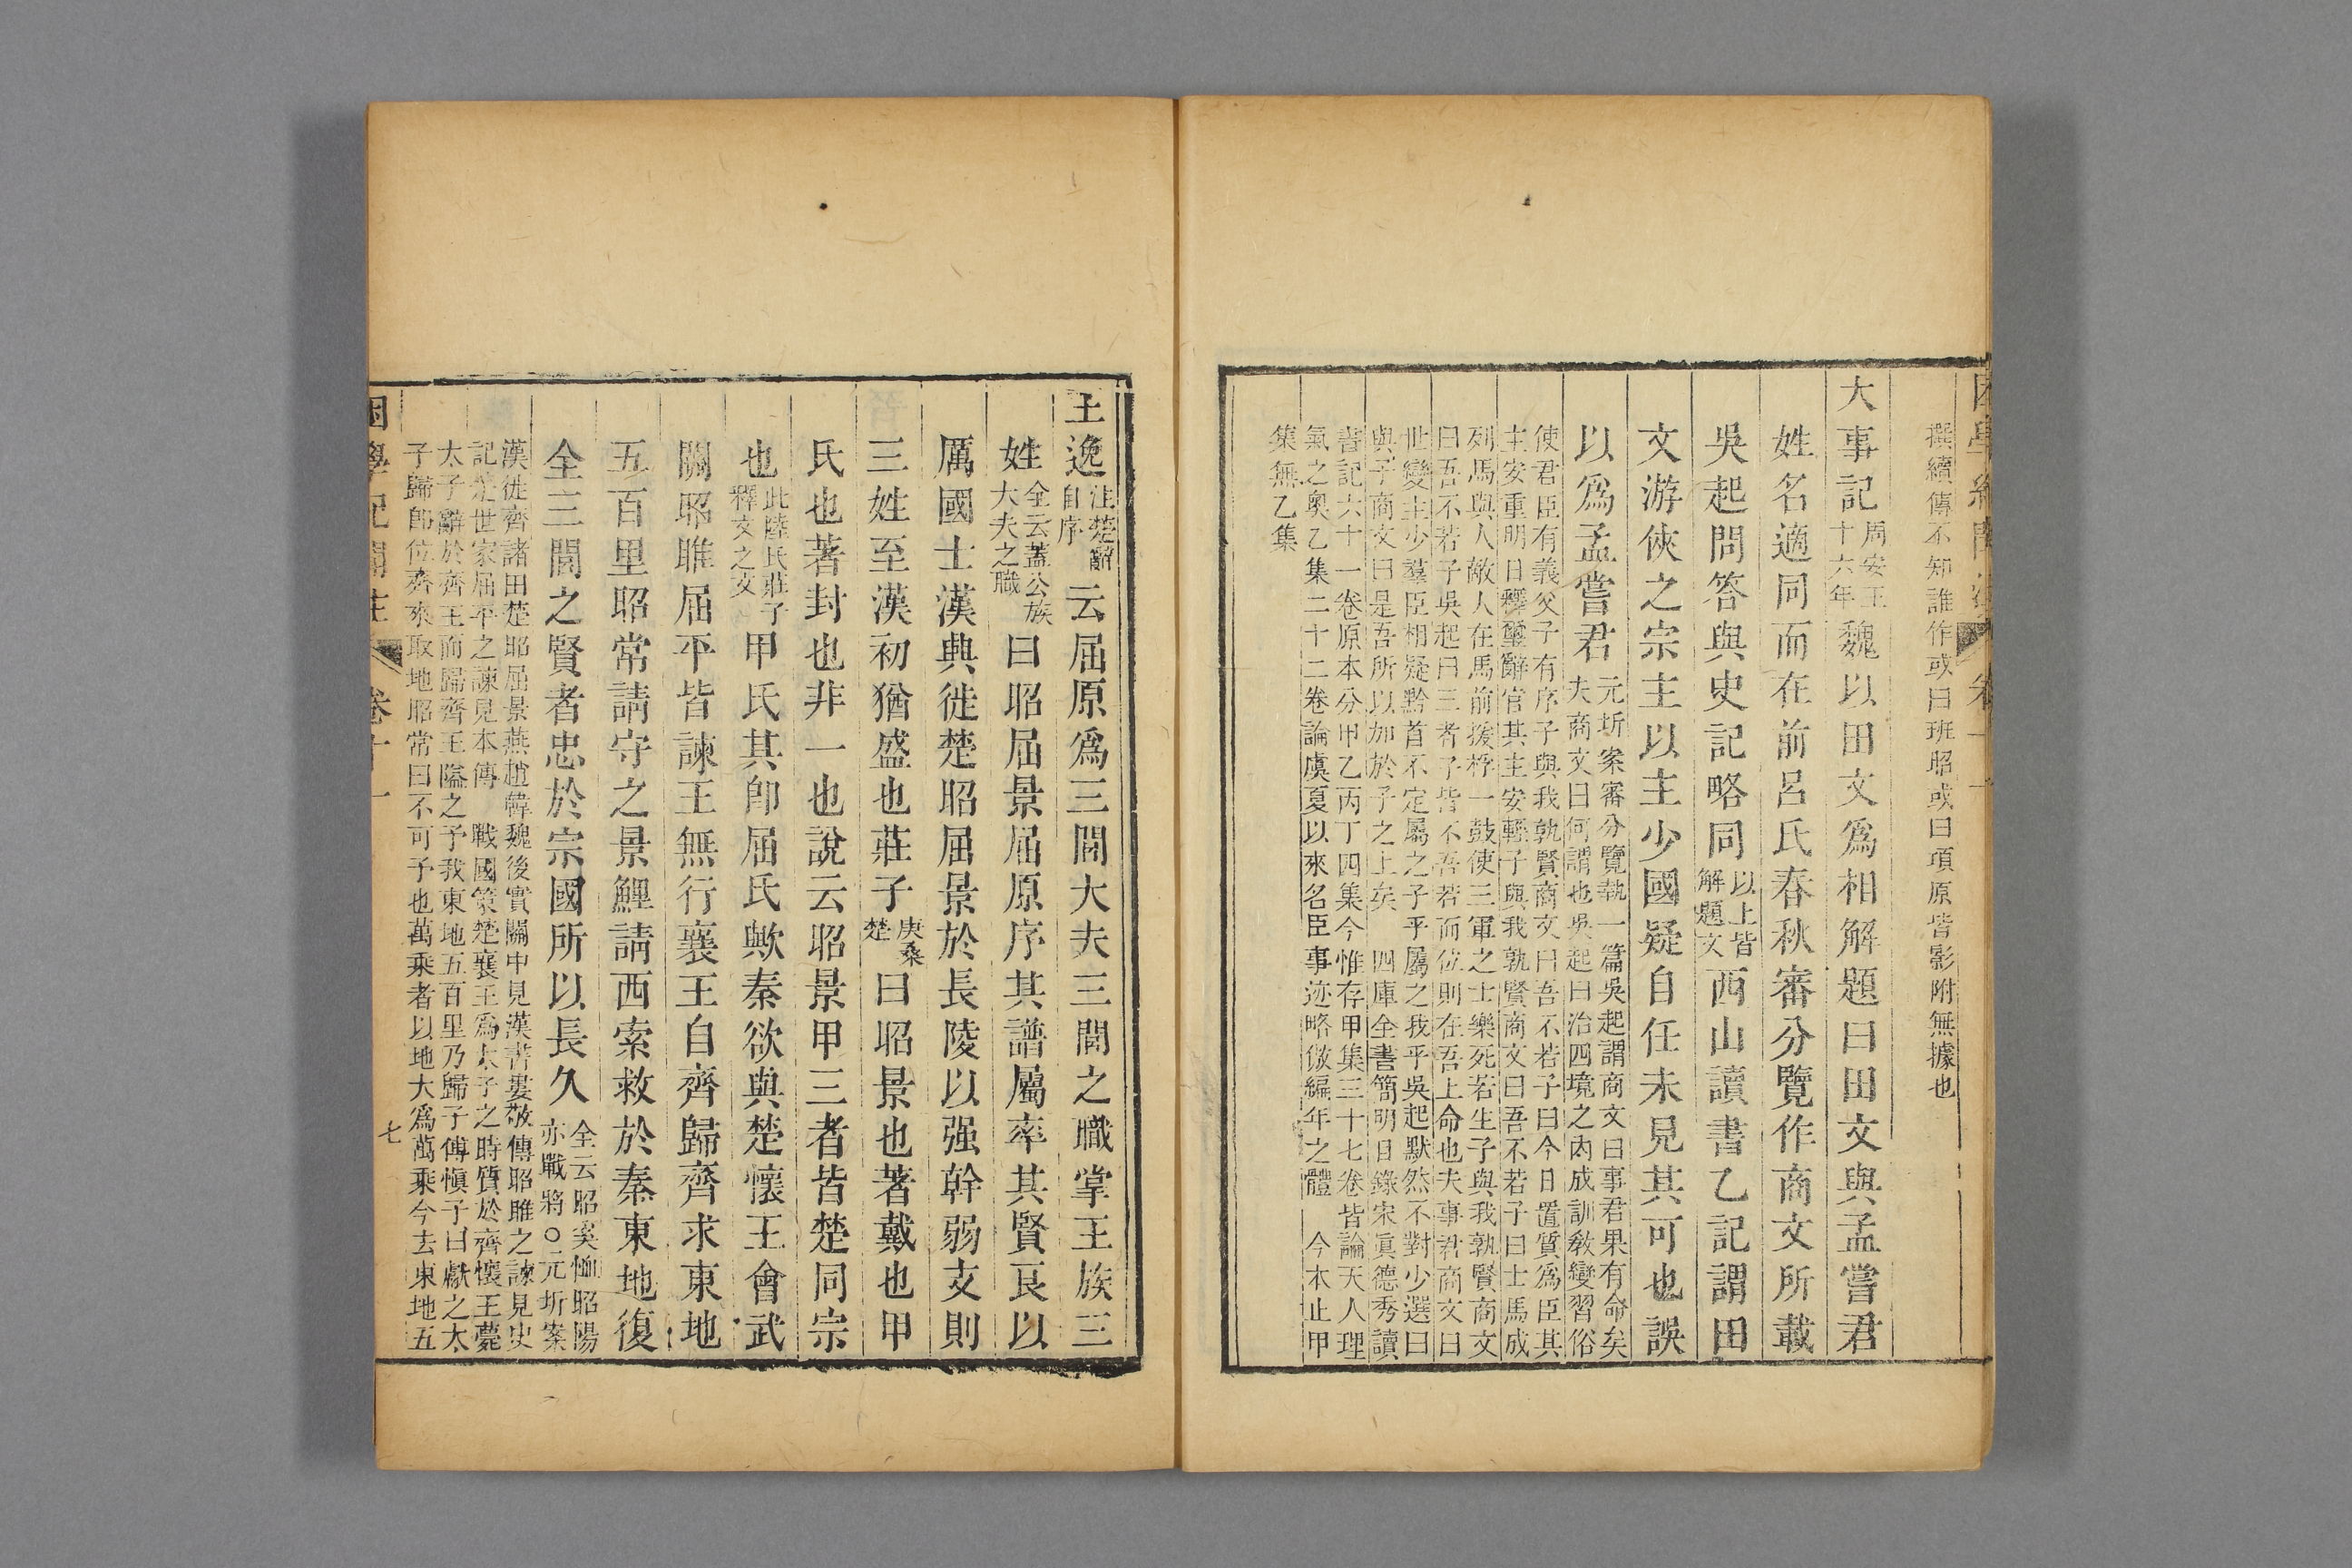 撰續傳不知誰作或曰班昭或曰項原皆影附無據也
大事記周安王十六年魏以田文為相解題曰田文與孟嘗君
姓名適同而在前呂氏春秋審分覽作商文所載
吳起問答與史記略同以上皆解題文西山讀書乙記謂田
文游俠之宗主以主少國疑自任未見其可也誤
以爲孟嘗君元圻案審分覽執一篇吳起謂商文曰事君果有命矣
夫商文曰何謂也吳起曰治四境之內成訓敎變習俗
使君臣有義父子有序子與我孰賢商文曰吾不若子曰今日置質爲臣其
主安重明日釋璽辭官其主安輕子與我孰賢商文曰吾不若子曰士馬成
列馬與人敵人在馬前援桴一鼓使三軍之士樂死若生子與我孰賢商文
曰吾不若子吳起曰三者子皆不吾若而位則在吾上命也夫事君商文曰
世變主少羣臣相疑黔首不定屬之子乎屬之我乎吳起默然不對少選曰
與子商文曰是吾所以加於子之上矣 四庫全書簡明目錄宋眞德秀讀
書記六十一卷原本分甲乙丙丁四集今惟存甲集三十七卷皆論天人理
氣之奧乙集二十二卷論虞夏以來名臣事迹略倣編年之體 今本止甲
集無乙集
王逸注楚辭自序云屈原爲三閭大夫三閭之職掌王族三
姓全云蓋公族大夫之職曰昭屈景屈原序其譜屬率其賢良以
厲國士漢興徙楚昭屈景於長陵以强幹弱支則
三姓至漢初猶盛也莊子庚桑楚曰昭景也著戴也甲
氏也著封也非一也說云昭景甲三者皆楚同宗
也此陸氏莊子釋文之文甲氏其卽屈氏歟秦欲與楚懷王會武
關昭睢屈平皆諫王無行襄王自齊歸齊求東地
五百里昭常請守之景鯉請西索救於秦東地復
全三閭之賢者忠於宗國所以長久全云昭奚恤昭陽
亦戰將○元圻案
漢徙齊諸田楚昭屈景燕趙韓魏後實關中見漢書婁敬傳昭睢之諫見史
記楚世家屈平之諫見本傳 戰國策楚襄王爲太子之時質於齊懷王薨
太子辭於齊王而歸齊王隘之予我東地五百里乃歸子傅愼子曰獻之太
子歸卽位齊來取地昭常曰不可予也萬乘者以地大爲萬乘今去東地五
困學紀聞注 卷十一 七